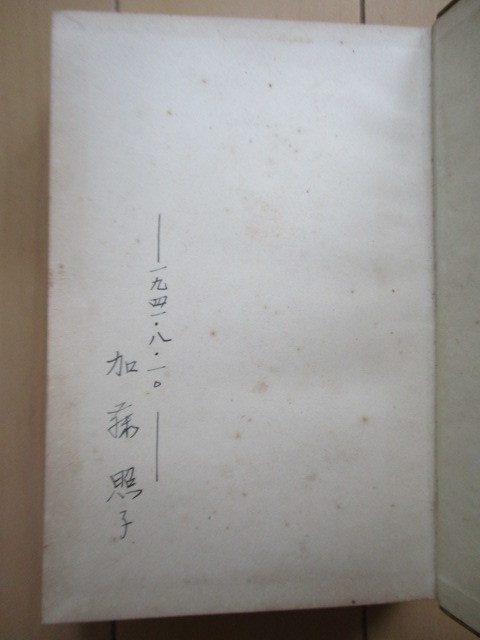 一九四一・八・一〇
加藤照子